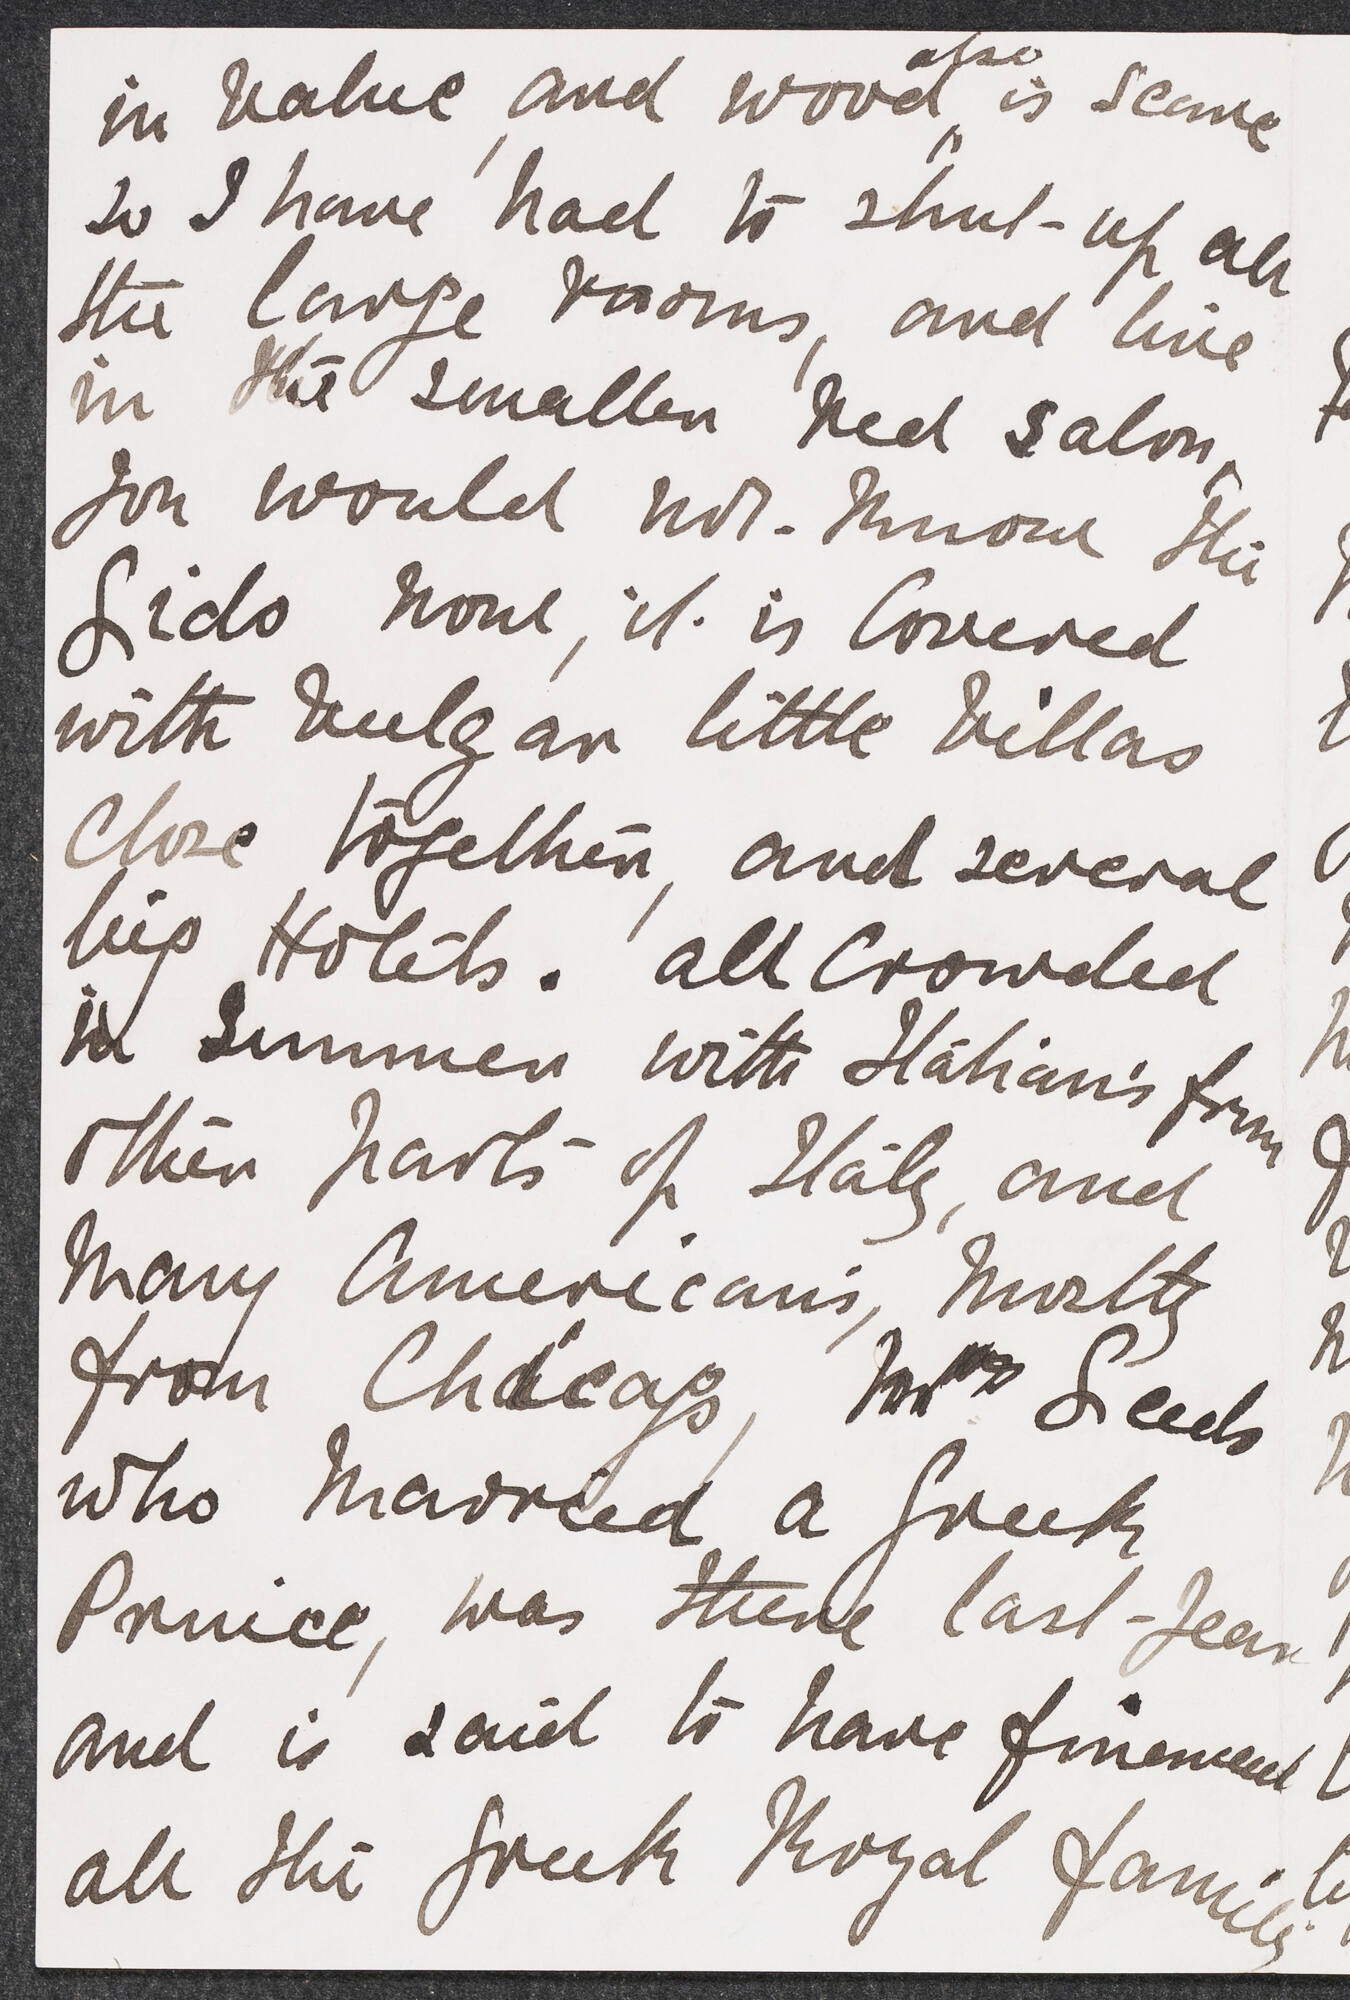 in value, and wood also is scarce
so I have had to shut-up all
the large rooms, and live
in the smaller Red Salon,
You would not-know the
Lido now, it is Covered
with vulgar little Villas
Close together, and several
big Hotels. all Crowded
in Summer with Italians from
other parts of Italy, and
Many Americans, Mostly
from Chicago, Mrs Leeds
who Married a Greek
Prince, was there last-Year
and is said to have financed
all the Greek Royal family